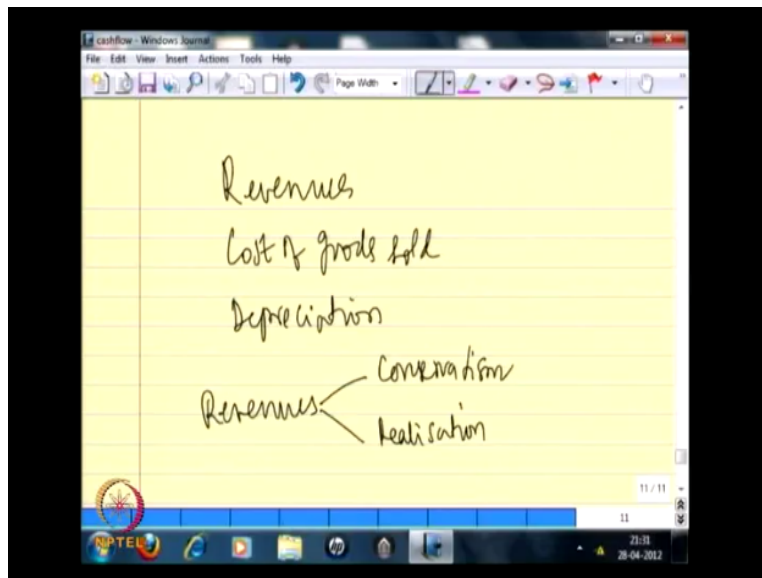 cashflow - Windows Journal
File Edit View Insert Actions Tools Help
Page Width
Revenues
Cost of goods sold
Depreciation
Conservatism
Revenues
Realisation
11 / 11
11
NPTEL
hp
21:31
28-04-2012